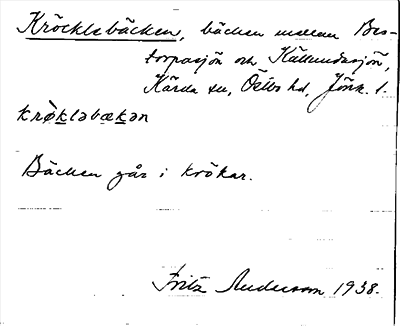 Kröcklebäcken, bäcken mellan Bos-
torpasjön och Källundasjön,
Kärda sn, Östbo hd, Jönk. l.
krø̀kləbækən
Bäcken går i krökar.
Fritz Anderson 1938.